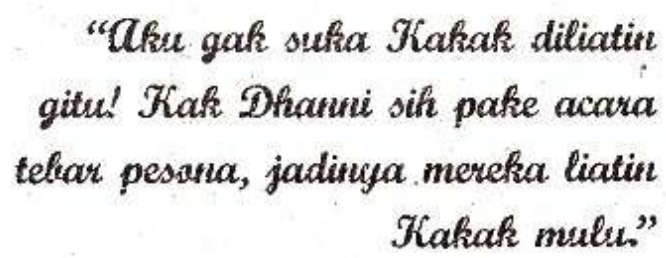 “Aku gak suka Kakak diliatin
gitu! Kak Dhanni sih pake acara
tebar pesona, jadinya mereka liatin
Kakak mulu.”